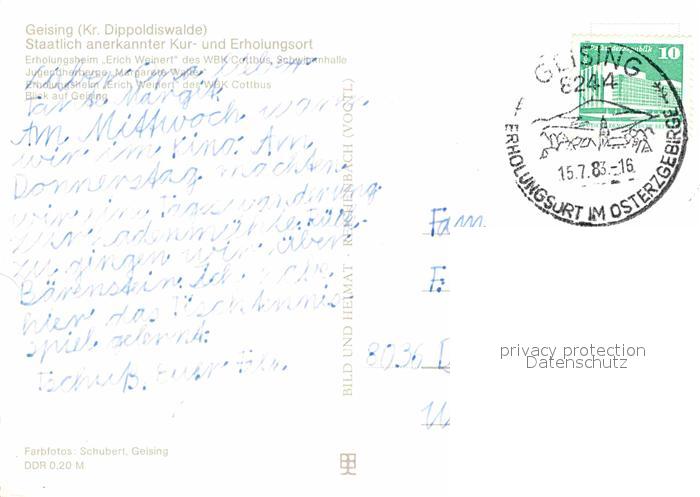 Geising (Kr. Dippoldiswalde)
Staatlich anerkannter Kur- und Erholungsort
Erholungsheim „Erich Weinert" des WBK Cottbus, Schwimmhalle
Jugendherberge „Margarete Walter"
Erholungsheim „Erich Weinert" des WBK Cottbus
Blick auf Geising
Tante Margit
Am Mittwoch waren
wir im Kino. Am
Donnerstag machten
wir eine Tageswanderung
zur Ladenmühle. Fuß
zu gingen wir über
Bärenstein. Ich habe
hier das Tischtennis
spiel gelernt.
Tschüß. Euer
Farbfotos: Schubert, Geising
DDR 0,20 M
BILD UND HEIMAT · REICHENBACH (VOGTL)
Palast der Republik
10
GEISING
8244
15.7.83.-16
ERHOLUNGSORT IM OSTERZGEBIRGE
Fam
F
8036 D
W
privacy protection
Datenschutz